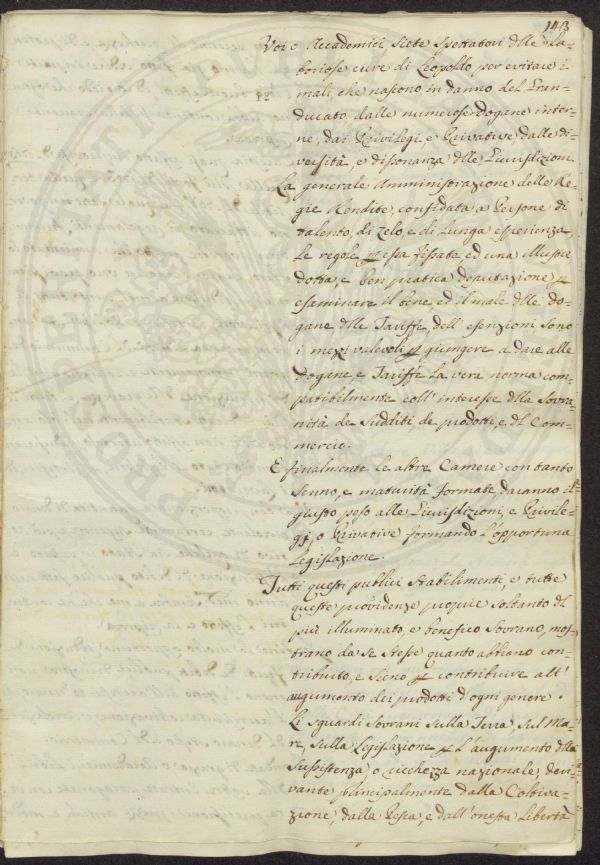 143
Voi o Accademici siete spettatori dlle La-
boriose cure di Leopoldo per evitare i
mali, che nascono in danno del Gran-
ducato dalle numerose dogane inter-
ne, dai Privilegi, e Privative, dalle di-
versità, e dissonanza dlle Giurisdizioni
La generale Amministrazione delle Re-
gie Rendite, confidata a Persone di
talento, di zelo, e di lunga esperienza
le regole p essa fissate, ed una illustre
dotta, e ben pratica deputazione p
esaminare il bene, ed il male dlle do-
gane dlle Tariffe, dell' esenzioni, sono
i mezzi valevoli p giungere a dare alle
dogane, e Tariffe la vera norma com-
patibilmente coll' interesse dlla Sovra-
nità de Sudditi, de prodotti, e dl Com-
mercio.
E finalmente le altre Camere con tanto
senno, e maturità formate, daranno il
giusto peso alle Giurisdizioni, e Privile-
gj, o Privative formando l'opportuna
Legislazione.
Tutti questi publici stabilimenti, e tutte
queste providenze proprie soltanto dl
più illuminato, e benefico Sovrano, mos-
trano da se stesse quanto abbiano con-
tribuito, e sieno p contribuire all'
augumento dei prodotti d'ogni genere.
Li sguardi Sovrani sulla Terra, sul Ma-
re, sulla Legislazione p l'augumento dlla
sussistenza, o ricchezza nazionale, deri-
vante principalmente dalla Coltiva-
zione, dalla Pesca, e dall'onesta libertà